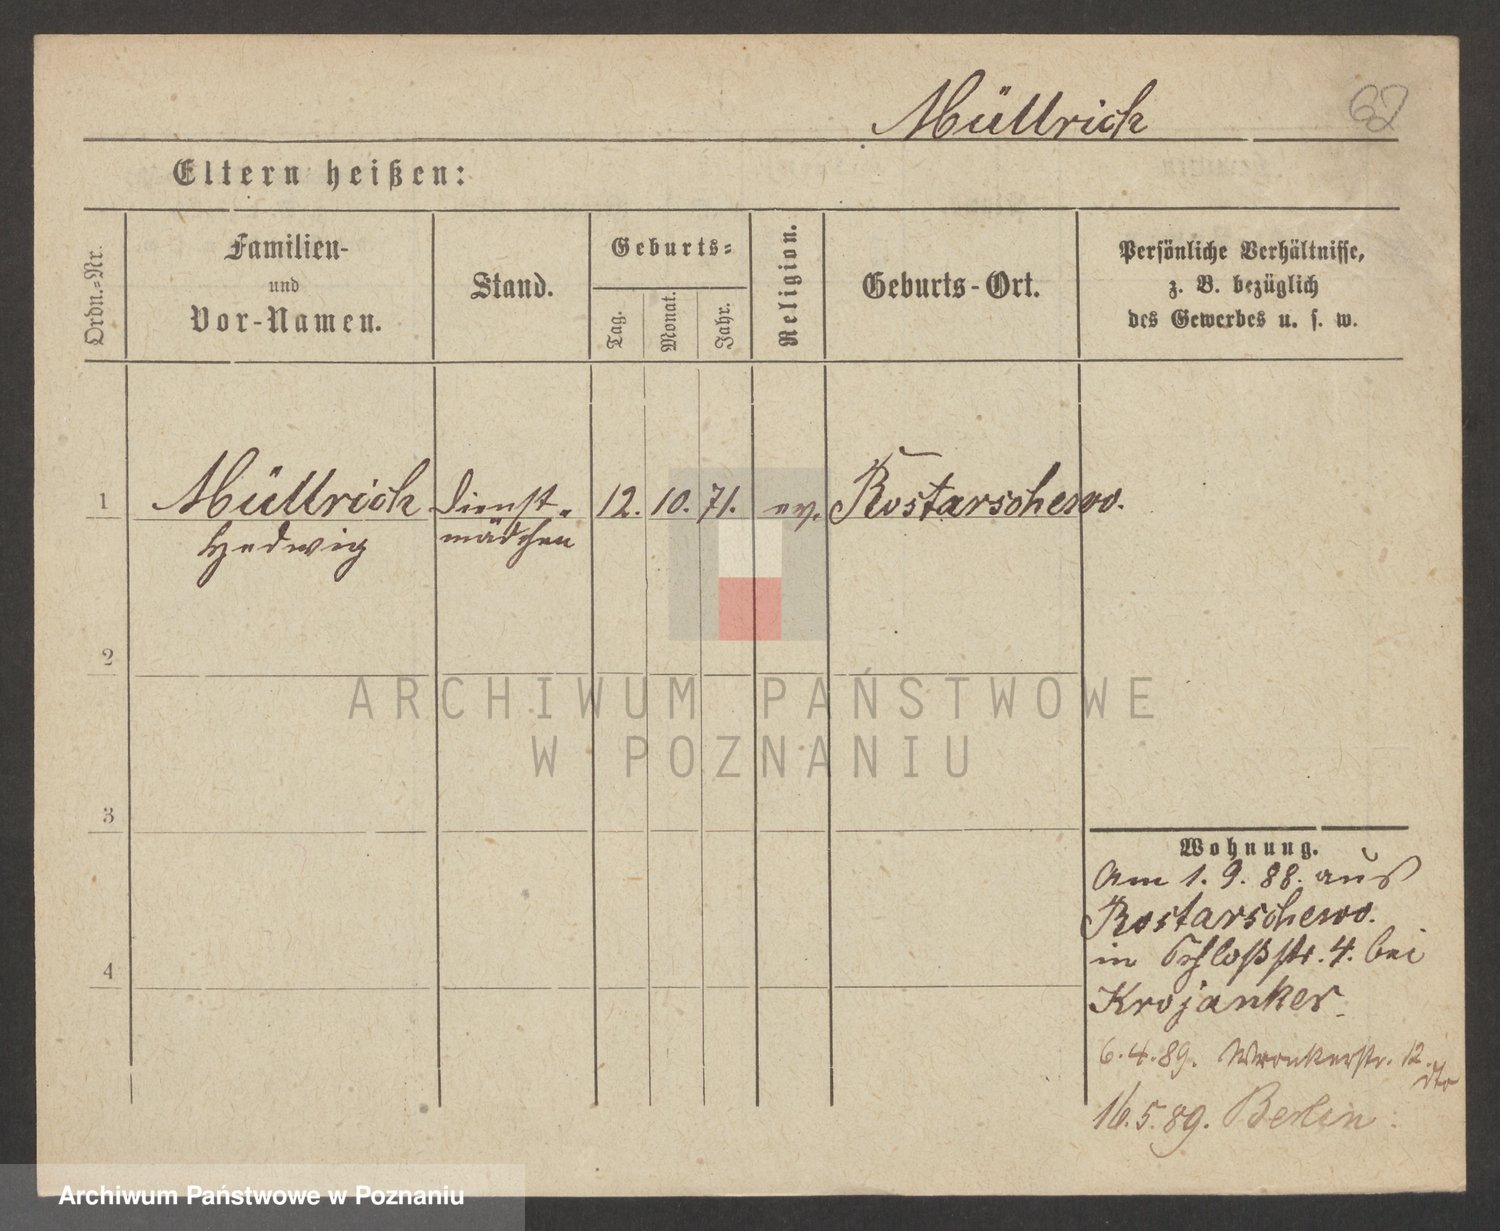 Müllrich 62
Eltern heißen:
Ordn.-Nr.
Familien-
und
Vor-Namen.
Stand.
Geburts-
Tag.
Monat.
Jahr.
Religion.
Geburts-Ort.
Persönliche Verhältnisse,
z. B. bezüglich
des Gewerbes u. s. w.
1 Müllrich Dienst- 12. 10. 71. ev. Rostarschewo.
Hedwig mädchen
2
ARCHIWUM PAŃSTWOWE
W POZNANIU
3
Wohnung.
Am 1. 9. 88. aus
Rostarschewo.
4
in Schloßstr. 4. bei
Krojanker.
6. 4. 89. Wronkerstr. 12.
dto
16. 5. 89. Berlin.
Archiwum Państwowe w Poznaniu